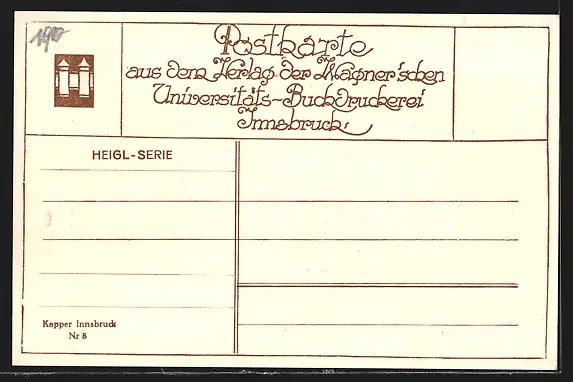 Postkarte
aus dem Verlag der Wagner'schen
Universitäts-Buchdruckerei
Innsbruck.
HEIGL-SERIE
Kapper Innsbruck
Nr 8